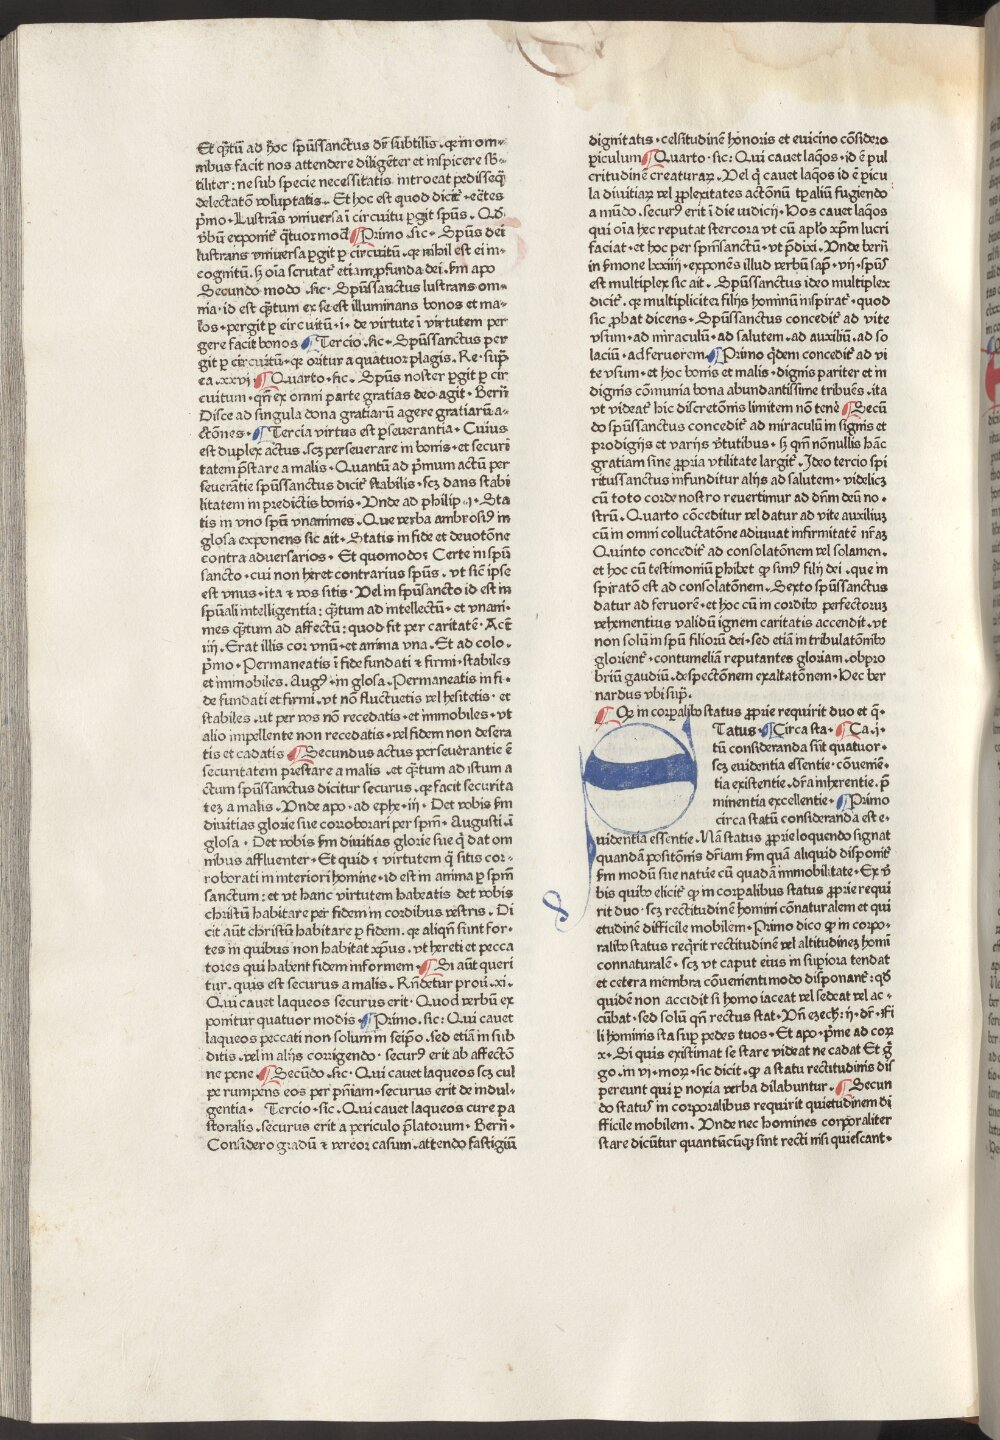 Et q̃tũ ad hoc spũssanctus dr̃ subtilis · qr in om-
nibus facit nos attendere diligẽter et inspicere sb-
tiliter : ne sub specie necessitatis introeat pedisseq̃
delectatõ voluptatis · Et hoc est quod dicit᷑ · ecc̃tes
p̃mo · Lustrans vniversa ĩ circuitu pgit spũs · Qd
vbũ exponit᷑ q̃tuor mod̃ ¶ Primo sic · Spũs dei
lustrans vniversa pgit p circuitũ · qr nihil est ei in-
cognitũ · s̃ oĩa scrutat᷑ etiam pfunda dei · fm apo
Secundo modo · sic · Spũssanctus lustrans om-
nia · id est q̃tum ex se est illuminans bonos et ma-
los · pergit p circuitũ · i · de virtute ĩ virtutem per
gere facit bonos ¶ Tercio · sic · Spũssanctus per
git p circuitũ · qr oritur a quatuor plagis · Re · sup̃
ea · xxvi ¶ Quarto · sic · Spũs noster pgit p cir
cuitum · qñ ex omni parte gratias deo agit · Berñ
Disce ad singula dona gratiarũ agere gratiarũ a-
ctões · ¶ Tercia virtus est pseverantia · Cuius
est duplex actus · scz perseverare in bonis · et securi
tatem p̃stare a malis · Quantũ ad p̃mum actũ per
severãtie spũssanctus dicit᷑ stabilis · scz dans stabi
litatem in predictis bonis · Vnde ad philip · i · Sta
tis in vno spũ vnanimes · Que verba ambrosiꝰ in
glosa exponens sic ait · Statis in fide et devotõne
contra adversarios · Et quomodo? Certe in spũ
sancto · cui non heret contrarius spũs · vt sic̃ ipse
est vnus · ita ⁊ vos sitis · Vel in spũsancto id est in
spũali intelligentia : q̃tum ad intellectũ · et vnani-
mes q̃tum ad affectũ : quod fit per caritatẽ · Act̃
iiij · Erat illis cor vnũ · et anima vna · Et ad colo ·
p̃mo · Permaneatis ĩ fide fundati ⁊ firmi · stabiles
et immobiles · Augꝰ · in glosa · Permaneatis in fi-
de fundati et firmi · vt nõ fluctuetis vel hesitetis · et
stabiles · ut per vos nõ recedatis · et immobiles · vt
alio impellente non recedatis · vel fidem non desera
tis et cadatis ¶ Secundus actus perseverantie ẽ
securitatem prestare a malis · et q̃tum ad istum a
ctum spũssanctus dicitur securus · qr facit securita
tez a malis · Vnde apo · ad ephe · iij · Det vobis fm
divitias glorie sue corroborari per spm̃ · Augusti · ĩ
glosa · Det vobis fm divitias glorie sue q̃ dat om
nibus affluenter · Et quid? virtutem q̃ sitis cor-
roborati in interiori homine · id est in anima p spm̃
sanctum : et vt hanc virtutem habeatis det vobis
christũ habitare per fidem in cordibus vestris · Di
cit aũt christũ habitare p fidem · qr aliqñ sunt for-
tes in quibus non habitat xp̃us · vt hereti et pecca
tores qui habent fidem informem · ¶ Si aũt queri
tur · quis est securus a malis · Rñdetur prov · xi ·
Qui cavet laqueos securus erit · Quod verbũ ex
ponitur quatuor modis · ¶ Primo · sic : Qui cavet
laqueos peccati non solum in seip̃o · sed etiã in sub
ditis · vel in alijs corrigendo · securꝰ erit ab affectõ
ne pene · ¶ Secũdo · sic · Qui cavet laqueos scz cul
pe rumpens eos per pñiam · securus erit de indul-
gentia · Tercio · sic · Qui cavet laqueos cure pa
storalis · securus erit a periculo p̃latorum · Berñ ·
Considero gradũ ⁊ vereor casum · attendo fastigiũ
dignitatis · celsitudinẽ honoris et e vicino cõsidero
piculum ¶ Quarto · sic : Qui cavet laq̃os · id ẽ pul
critudinẽ creaturaꝝ · Vel q̃ cavet laq̃os id ẽ picu
la divitiaꝝ vel pplexitates actõnũ tp̃aliũ fugiendo
a mũdo · securꝰ erit ĩ die iudicij · Vos cavet laq̃os
qui oĩa hec reputat stercora vt cũ ap̃lo xp̃m lucri
faciat · et hoc per spm̃sanctũ · vt p̃dixi · Vnde berñ
in s̃mone lxxiiij · exponẽs illud verbũ sap̃ · vij · spũs
est multiplex sic ait · Spũssanctus ideo multiplex
dicit᷑ · qr multipliciter filijs hominũ inspirat᷑ · quod
sic pbat dicens · Spũssanctus concedit᷑ ad vite
vsum · ad miraculũ · ad salutem · ad auxiliũ · ad so
laciũ · ad fervorem · ¶ Primo q̃dem concedit᷑ ad vi
te vsum · et hoc bonis et malis · dignis pariter et in
dignis cõmunia bona abundantissime tribuẽs · ita
vt videat᷑ hic discretõnis limitem nõ tenẽ ¶ Secũ
do spũssanctus concedit᷑ ad miraculũ in signis et
prodigijs et varijs v̓tutibus · s̃ qm̃ nõnullis hãc
gratiam sine ppria vtilitate largit᷑ · Ideo tercio spi
ritussanctus infunditur alijs ad salutem · videlicz
cũ toto corde nostro revertimur ad dñm deũ no ·
strũ · Quarto cõceditur vel datur ad vite auxiliuz
cũ in omni colluctatõne adiuvat infirmitatẽ nr̃az
Quinto concedit᷑ ad consolatõnem vel solamen ·
et hoc cũ testimoniũ phibet qꝙ simꝰ filij dei · que in
spiratõ est ad consolatõnem · Sexto spũssanctus
datur ad fervorẽ · et hoc cũ in cordibꝰ perfectoruz
vehementius validũ ignem caritatis accendit · vt
non solũ in spũ filiorũ dei · sed etiã in tribulatõnibꝰ
glorient᷑ · contumeliã reputantes gloriam · obpro
briũ gaudiũ · despectõnem exaltatõnem · Hec ber
nardus vbi sup̃ ·
¶ Qꝙ in corpalibꝰ status pprie requirit duo et q̃ ·
Tatus · ¶ Circa sta · ¶ Ca · i ·
tũ consideranda sũt quatuor ·
scz evidentia essentie · cõveniẽ-
tia existentie · dr̃a inherentie · p̃
minentia excellentie · ¶ Primo
circa statũ consideranda est e-
videntia essentie · Nã status pprie loquendo signat
quandã positõnis dr̃iam fm quã aliquid disponit᷑
fm modũ sue nature cũ quadã immobilitate · Ex v̓
bis quibꝰ elicit᷑ qꝙ in corpalibus status pprie requi
rit duo · scz rectitudinẽ homini cõnaturalem et qui
etudinẽ difficile mobilem · Primo dico qꝙ in corpo-
ralibꝰ status req̃rit rectitudinẽ vel altitudinez homĩ
connaturalẽ · scz vt caput eius in supiora tendat
et cetera membra cõvenienti modo disponant᷑ : qd
quidẽ non accidit si homo iaceat vel sedeat vel ac-
cũbat · sed solũ qñ rectus stat · Vñ ezech : ij · dr̃ · Fi
li hominis sta sup pedes tuos · Et apo · p̃me ad cor
x · Si quis existimat se stare videat ne cadat Et g̃
go · in vj · moꝝ · sic dicit · qꝙ a statu rectitudinis dis
pereunt qui p noxia verba dilabuntur · ¶ Secun
do statꝰ in corporalibus requirit quietudinem di
fficile mobilem · Vnde nec homines corporaliter
stare dicũtur quantũcũqꝫ sint recti nisi quiescant ·
8